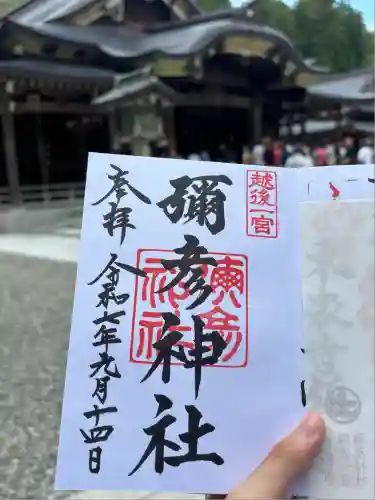 越後一宮
彌彦神社
彌彦
神社
奉拝
令和七年九月十四日